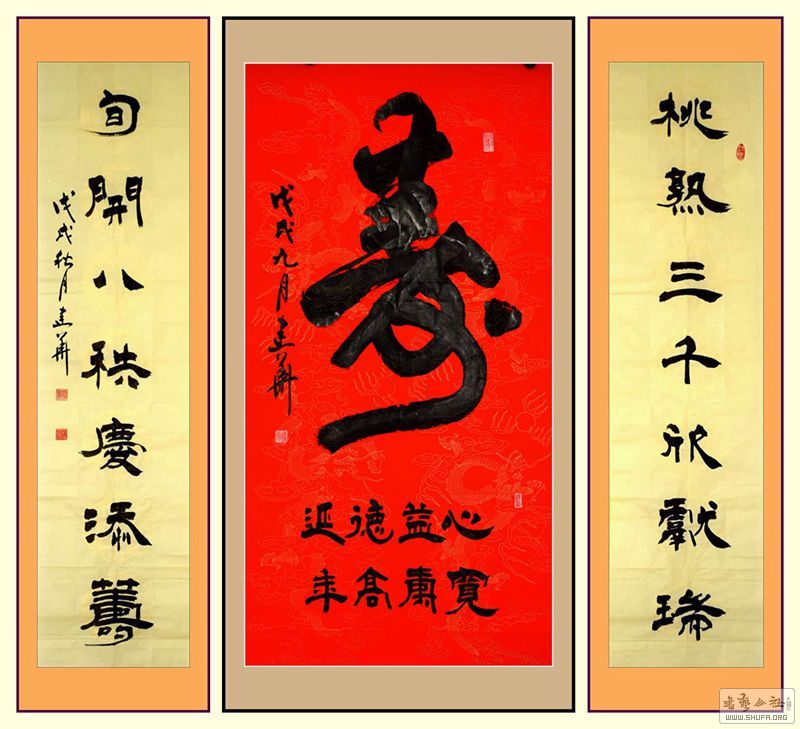 桃熟三千欣獻瑞
壽
心寬
益壽
德高
延年
戊戌九月建華
旬開八秩慶添籌
戊戌秋月建華
WWW.SHUFA.ORG